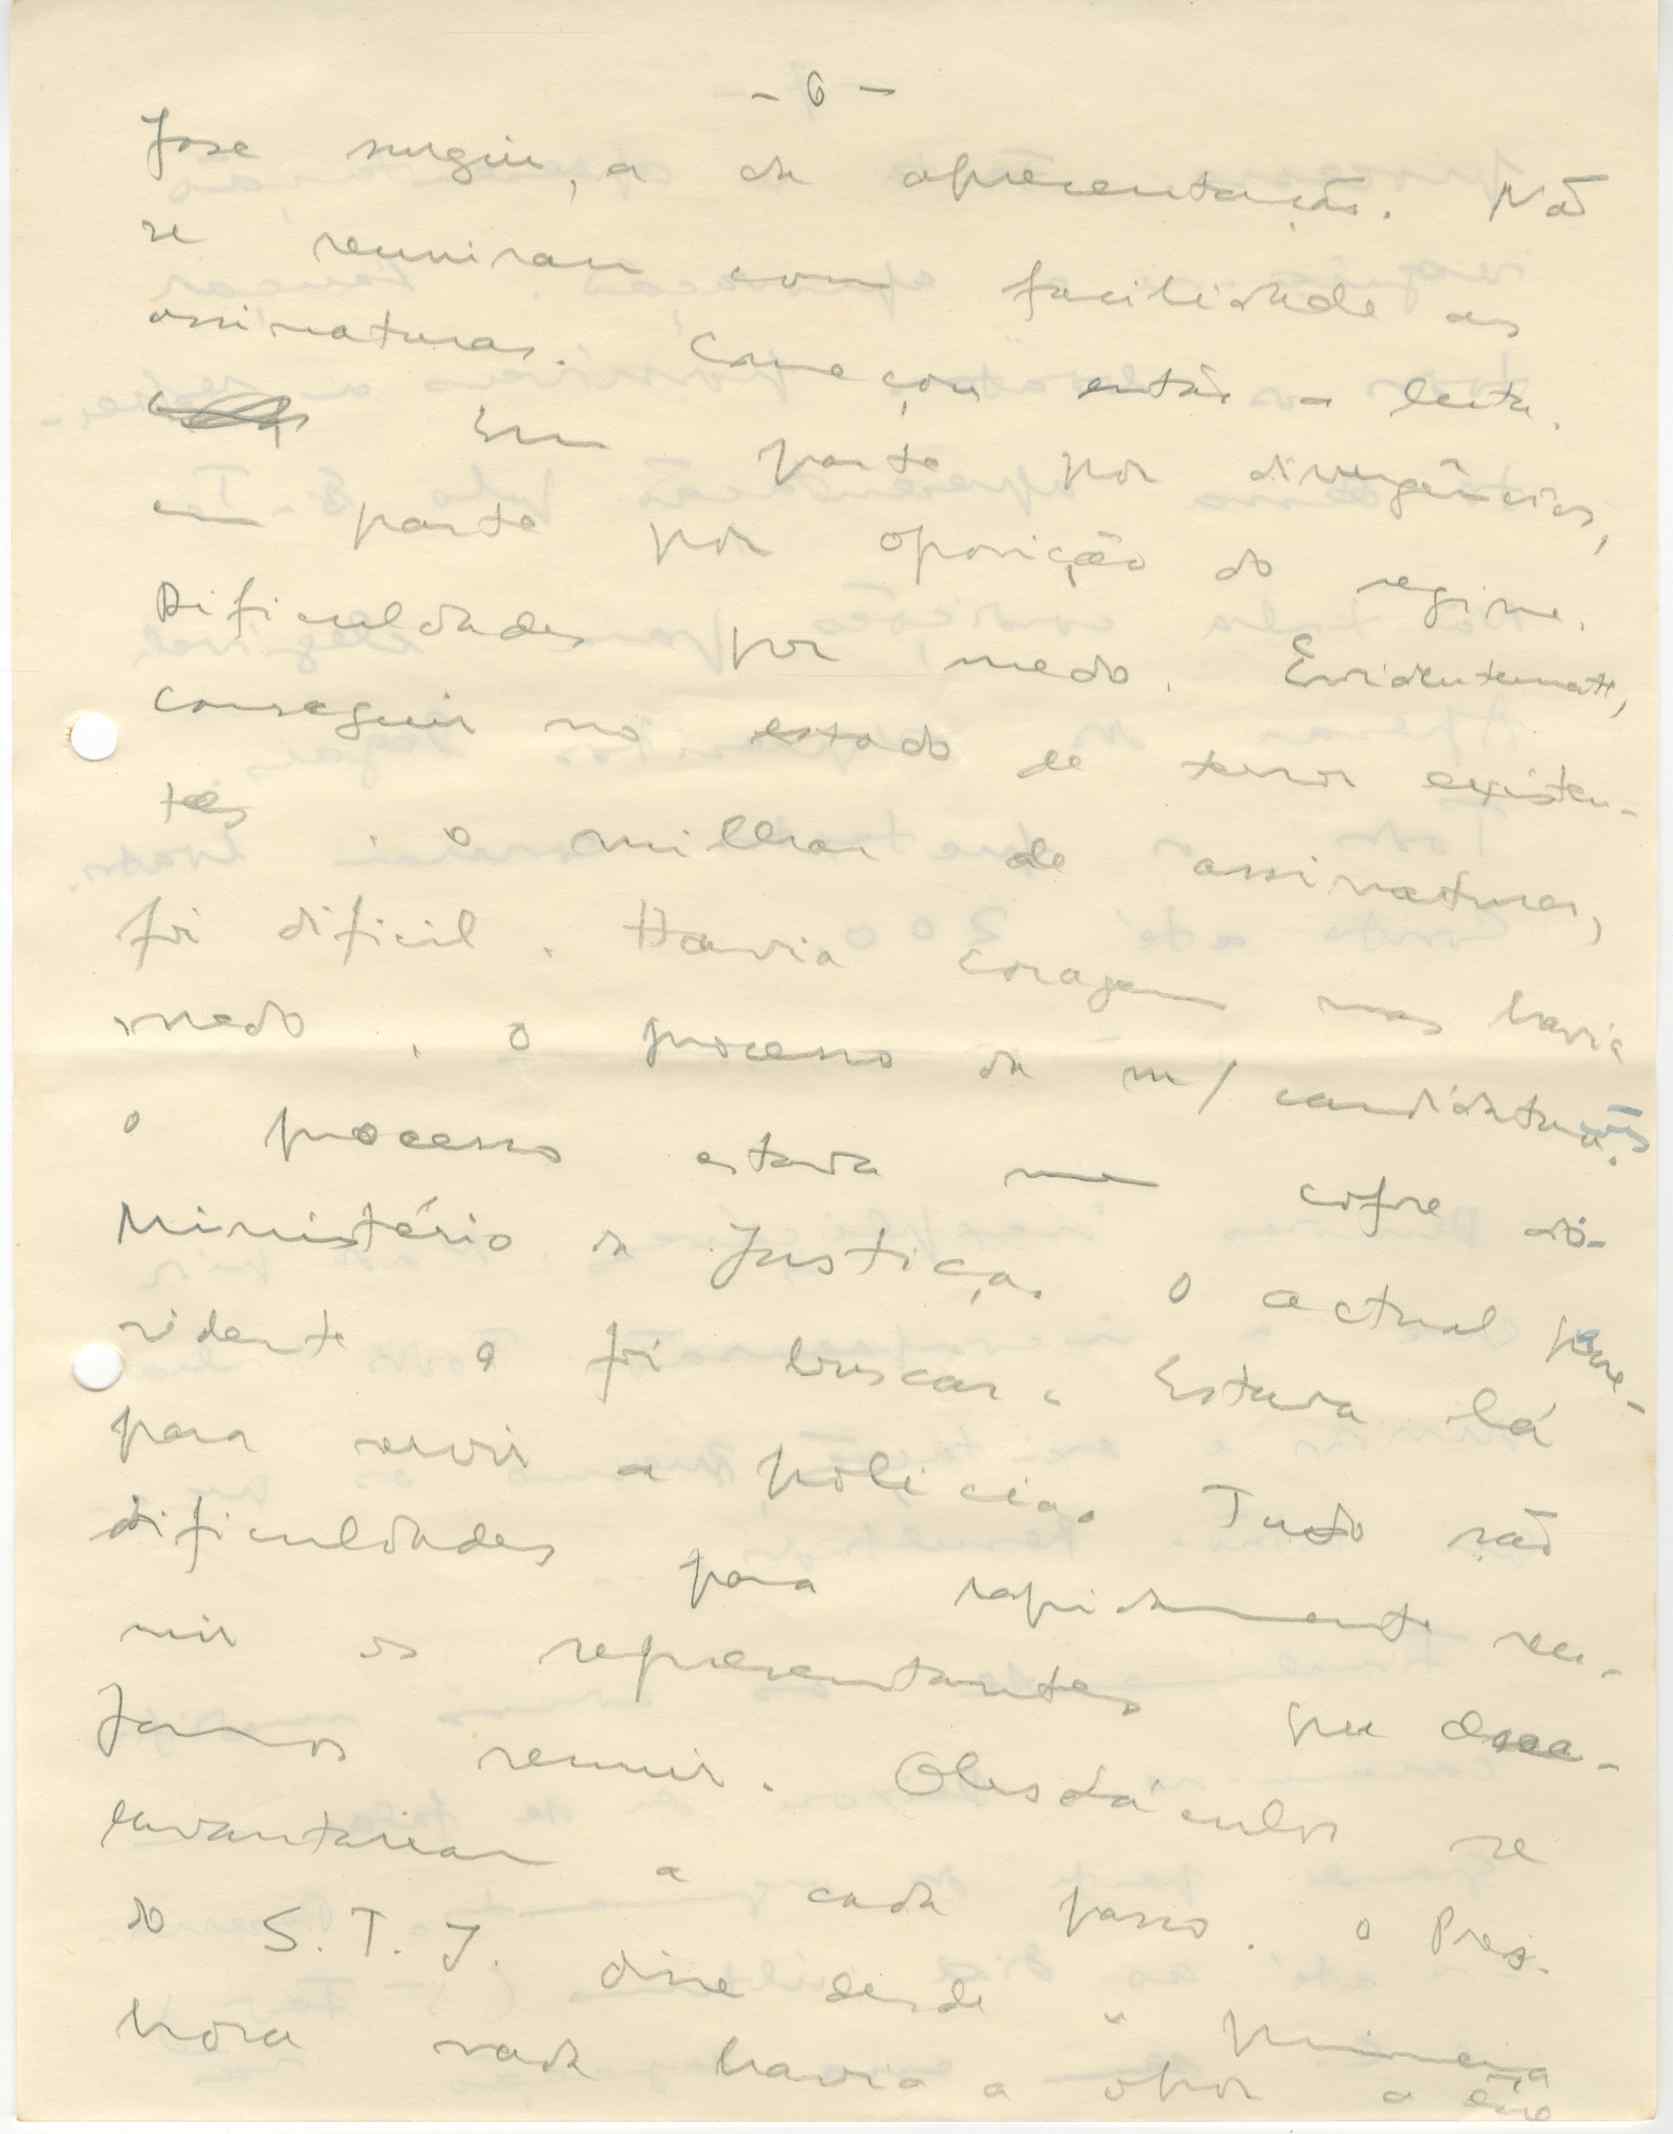 - 6 -
fase surgiu, a da apresentação. Não
se reuniram com facilidade as
assinaturas. Começou então a luta.
Em parte por divergências,
em parte por oposição do regime.
Dificuldades por medo. Evidentemente,
conseguir no estado de terror existen-
tes o milhar de assinaturas,
foi dificil. Havia coragem mas havia
medo. O processo da m/ candidatura
o processo estava num cofre do
Ministério da Justiça. O actual pre-
sidente o foi buscar. Estava lá
para servir a policia. Tudo são
dificuldades para rapidamente reu-
nir os representantes que dese-
jamos reunir. Obstáculos se
levantariam a cada passo. O Pres.
do S. T. J. disse desde a primeira
hora nada havia a opor a